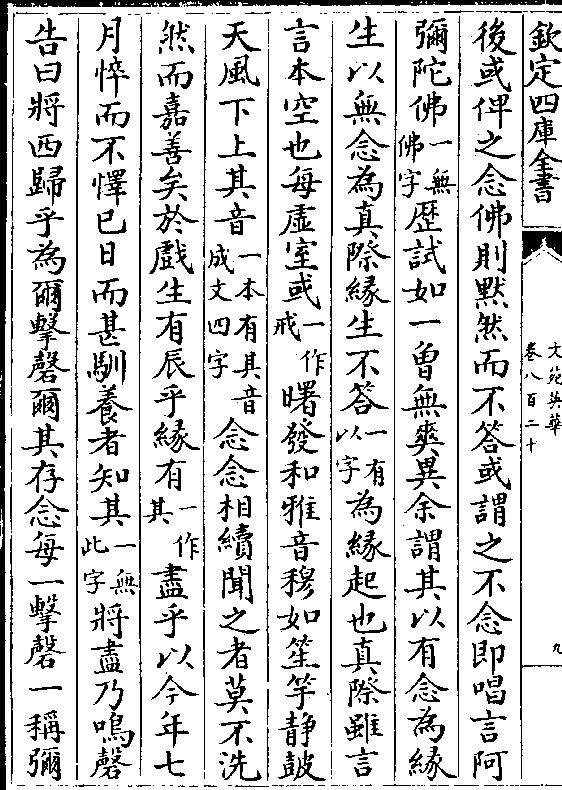 欽定四庫全書
文苑英華
卷八百二十
九
後或俾之念佛則黙然而不答或謂之不念即唱言阿
彌陀佛一無佛字歴試如一曾無爽異余謂其以有念為緣
生以無念為真際緣生不答一有以字為緣起也真際雖言
言本空也每虛室或一作戒曙發和雅音穆如笙竽静皷
天風下上其音一本有其音成文四字念念相續聞之者莫不洗
然而嘉善矣於戲生有辰乎緣有一作其盡乎以今年七
月悴而不懌已日而甚馴養者知其一無此字將盡乃鳴磬
告曰將西歸乎為爾擊磬爾其存念每一擊磬一稱彌